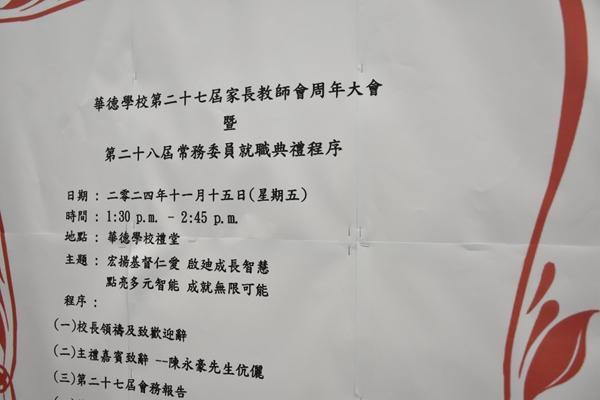 華德學校第二十七屆家長教師會周年大會
暨
第二十八屆常務委員就職典禮程序
日期：二零二四年十一月十五日(星期五)
時間：1:30 p.m. - 2:45 p.m.
地點：華德學校禮堂
主題：宏揚基督仁愛 啟迪成長智慧
點亮多元智能 成就無限可能
程序：
(一)校長領禱及致歡迎辭
(二)主禮嘉賓致辭 --陳永豪先生伉儷
(三)第二十七屆會務報告